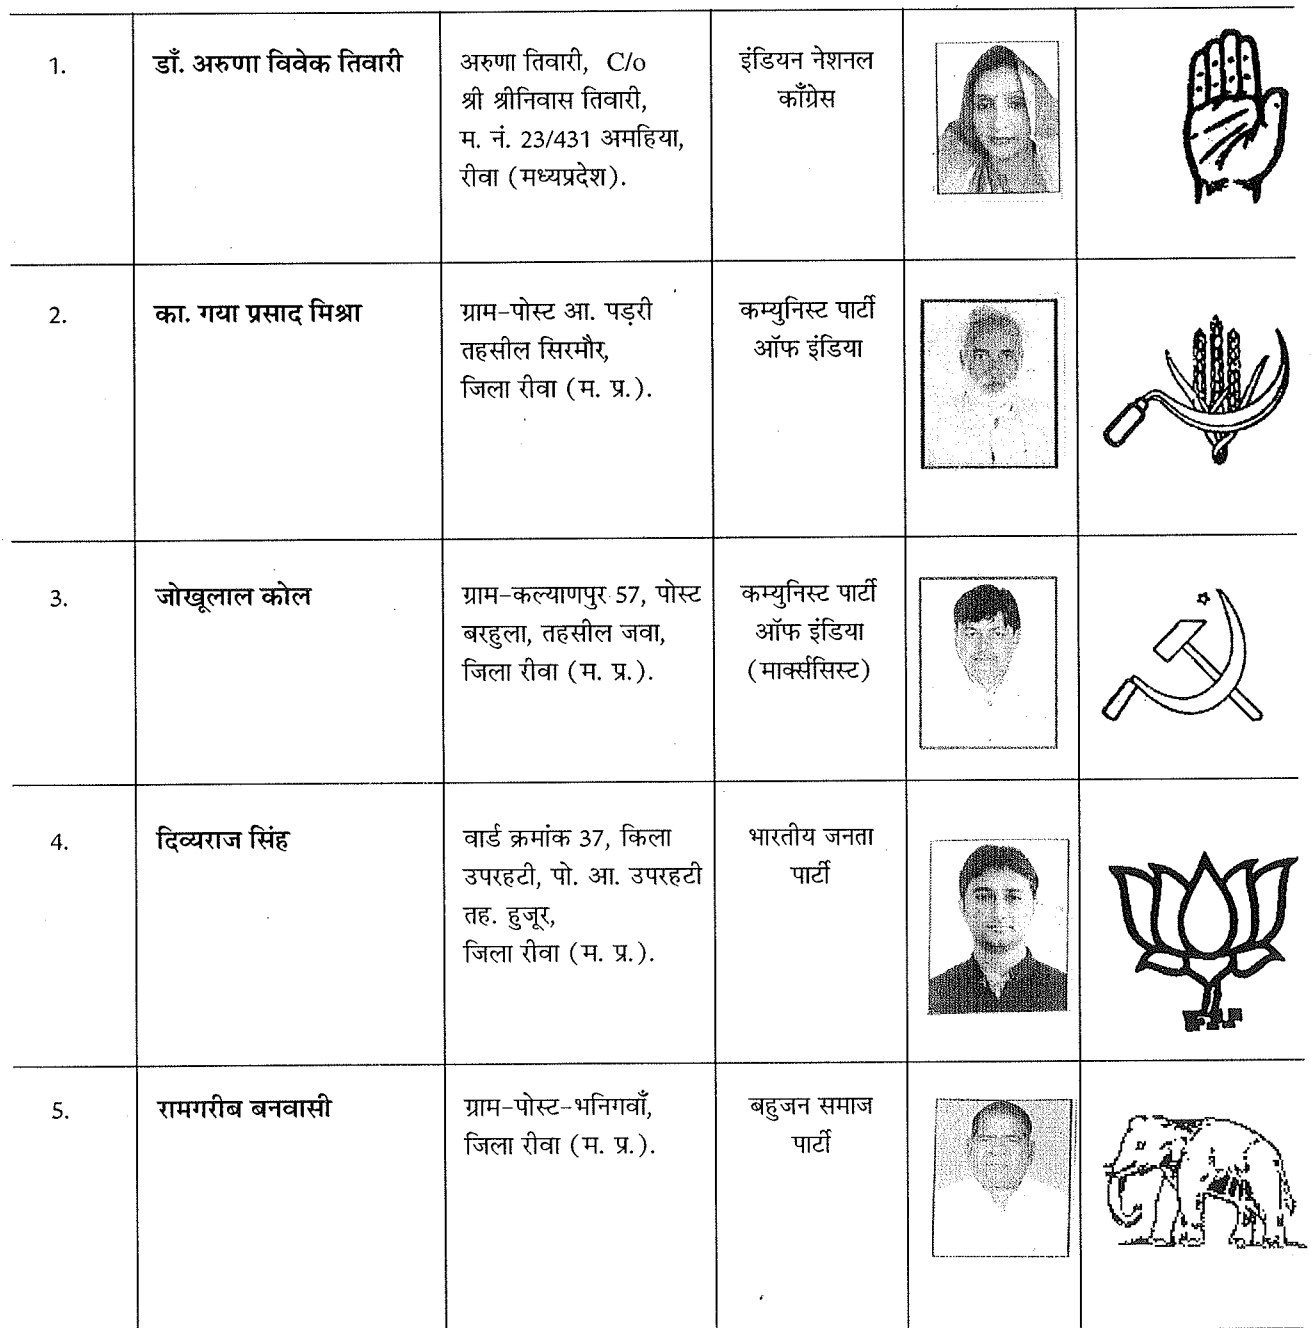 1.
डाँ. अरुणा विवेक तिवारी
अरुणा तिवारी, C/o
श्री श्रीनिवास तिवारी,
म. नं. 23/431 अमहिया,
रीवा (मध्यप्रदेश).
इंडियन नेशनल
काँग्रेस
2.
का. गया प्रसाद मिश्रा
ग्राम-पोस्ट आ. पड़री
तहसील सिरमौर,
जिला रीवा (म. प्र.).
कम्युनिस्ट पार्टी
ऑफ इंडिया
3.
जोखूलाल कोल
ग्राम-कल्याणपुर 57, पोस्ट
बरहुला, तहसील जवा,
जिला रीवा (म. प्र.).
कम्युनिस्ट पार्टी
ऑफ इंडिया
(मार्क्ससिस्ट)
4.
दिव्यराज सिंह
वार्ड क्रमांक 37, किला
उपरहटी, पो. आ. उपरहटी
तह. हुजूर,
जिला रीवा (म. प्र.).
भारतीय जनता
पार्टी
5.
रामगरीब बनवासी
ग्राम-पोस्ट-भनिगवाँ,
जिला रीवा (म. प्र.).
बहुजन समाज
पार्टी